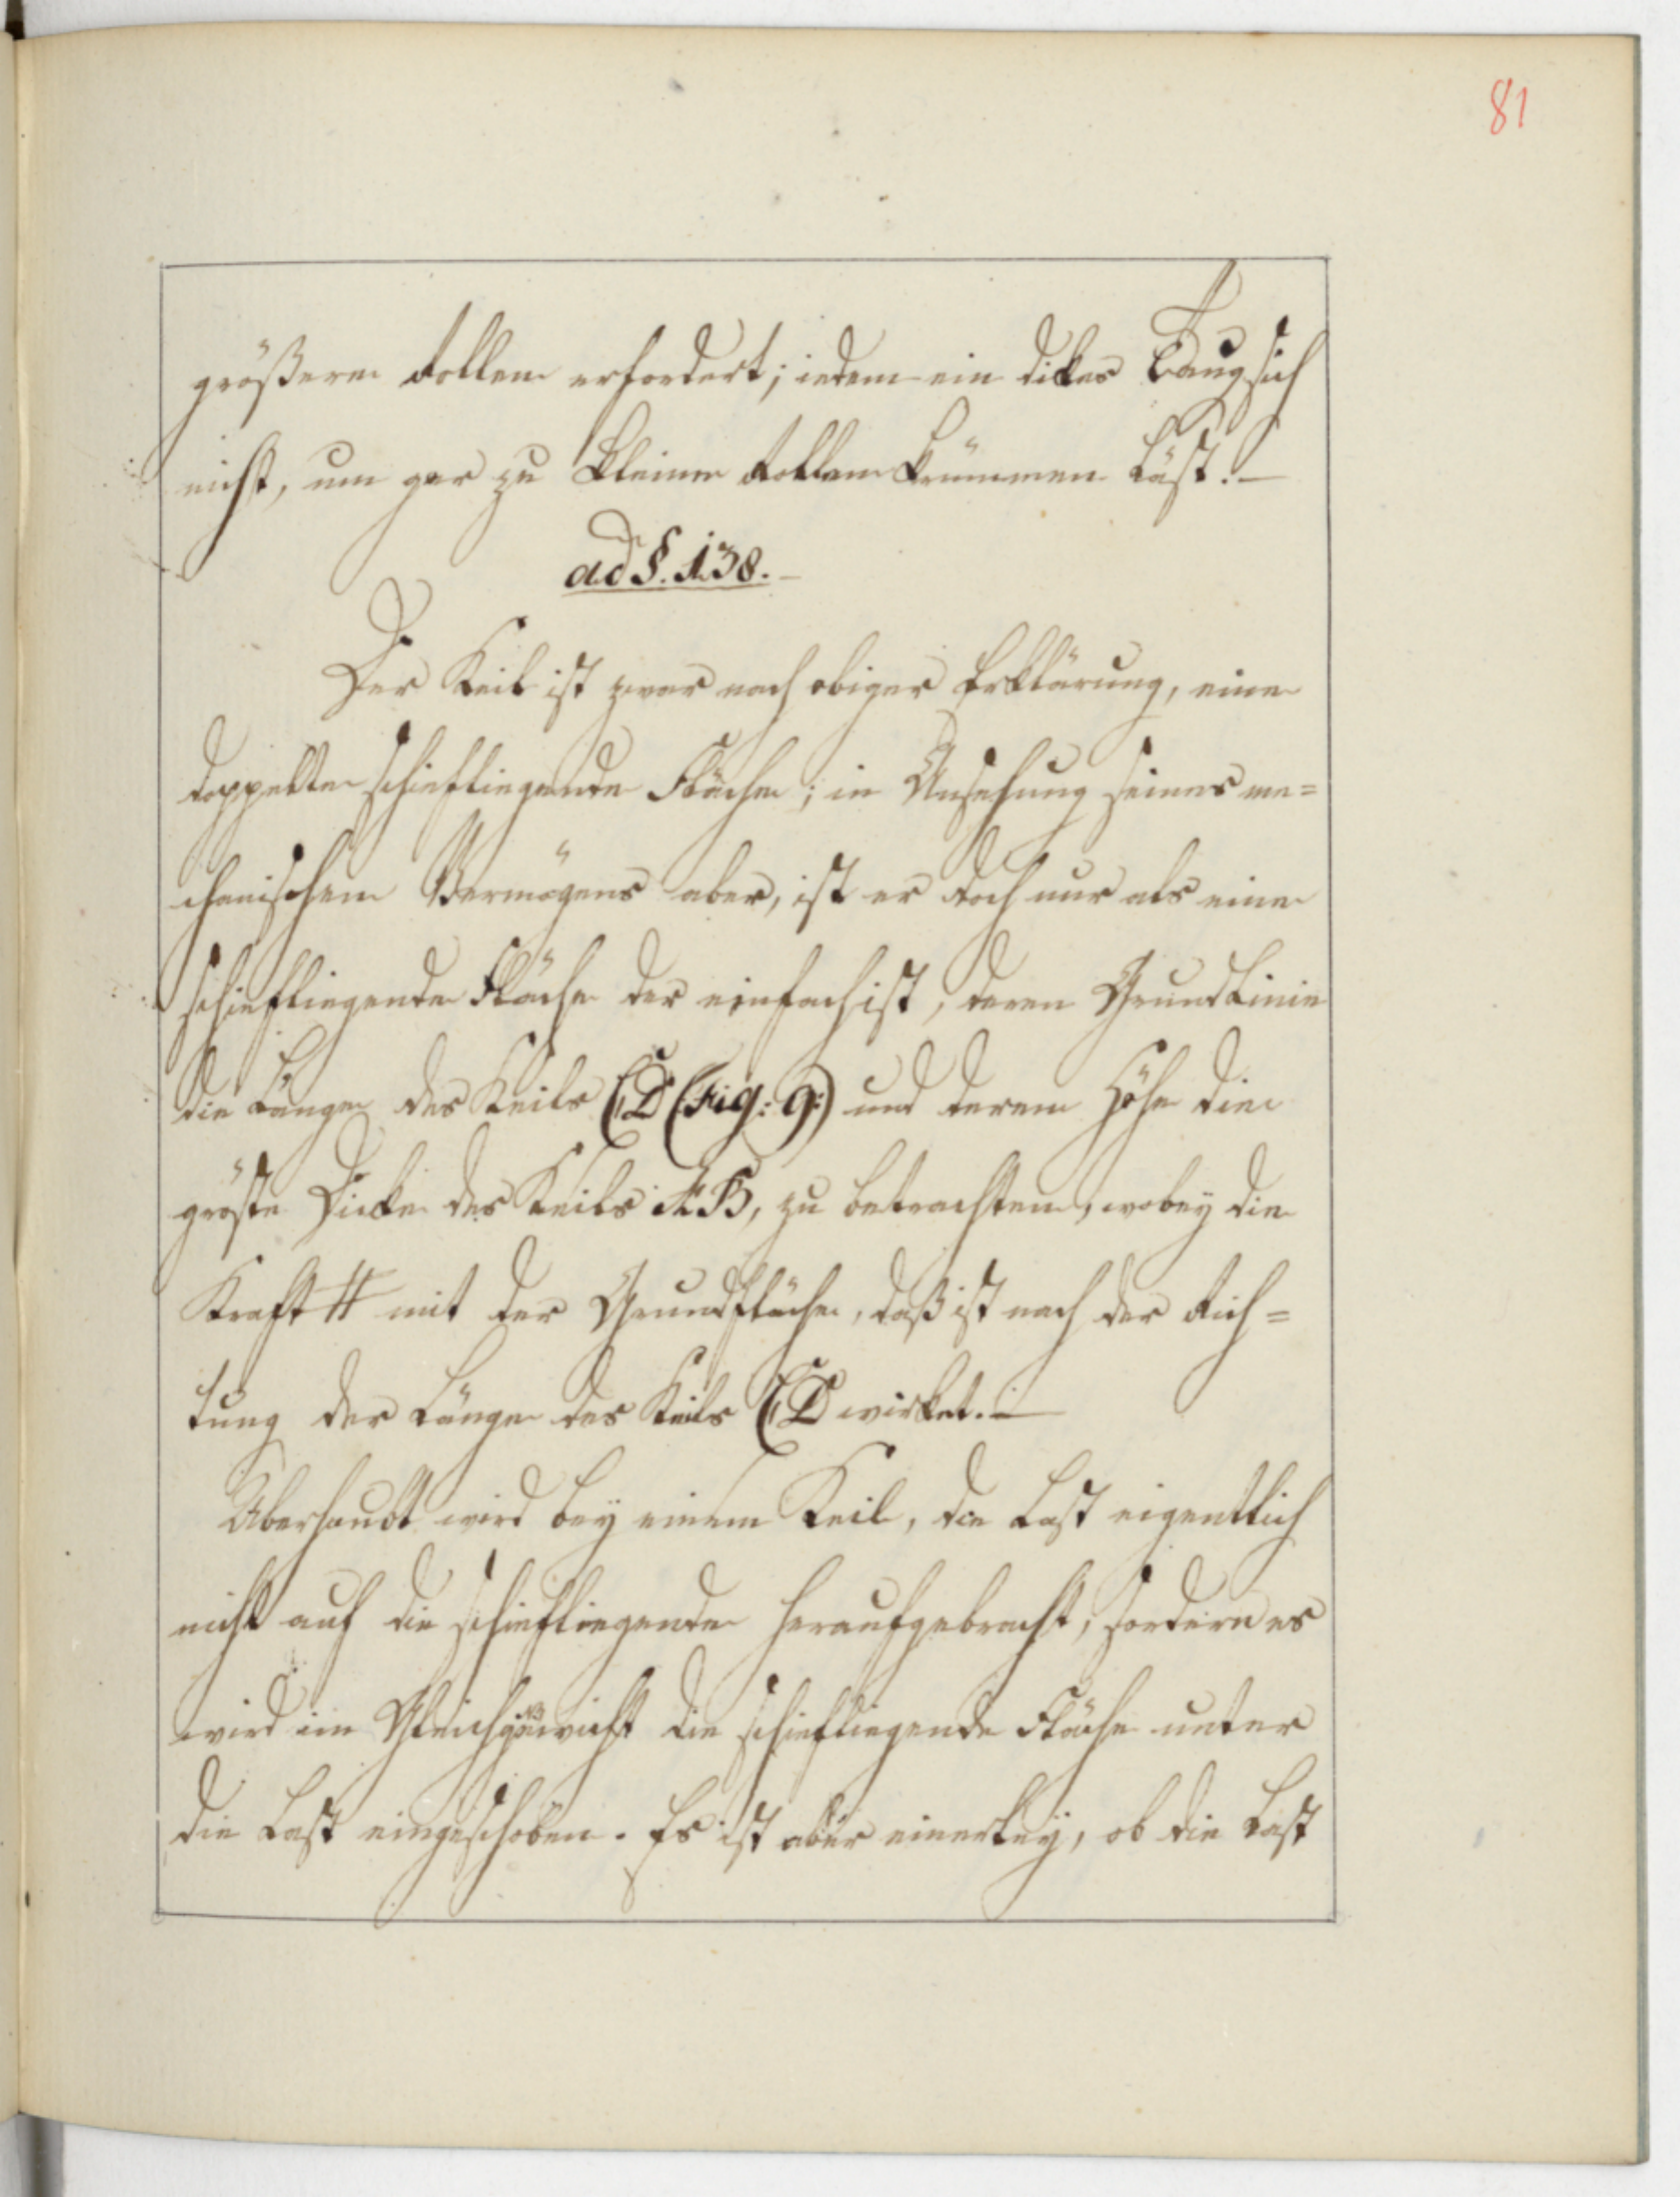 81
größere Rollen erfordert; indem ein dickes Taug sich
nicht, um gar zu kleine Rollen krümmen läst. —
ad §. 138. —
Der Keil ist zwar nach obiger Erklärung, eine
doppelte schiefliegende Fläche; in Ansehung seines me=
chanischen Vermögens aber, ist er doch nur als eine
schiefliegende Fläche der einfach ist, deren GrundLinie
die Länge des Keils CD (Fig: 9:) und deren Höhe die
gröste Dicke des Keils AB, zu betrachten, wobey die
Kraft H mit der Grundfläche, daß ist nach der Rich=
tung der Länge des Keils CD wirket. —
Überhaubt wird bey einem Keil, die Last eigentlich
nicht auf die schiefliegende heraufgebracht, sondern es
wird im Gleichgewicht die schiefliegende Fläche unter
die Last eingeschoben. Es ist aber einerley, ob die Last